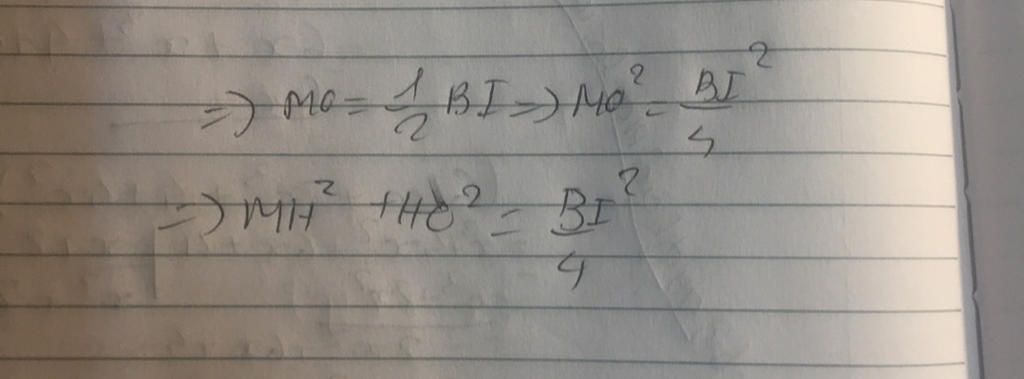 => MO = 1/2 BI => MO² = BI²/4
=> MH² + HO² = BI²/4